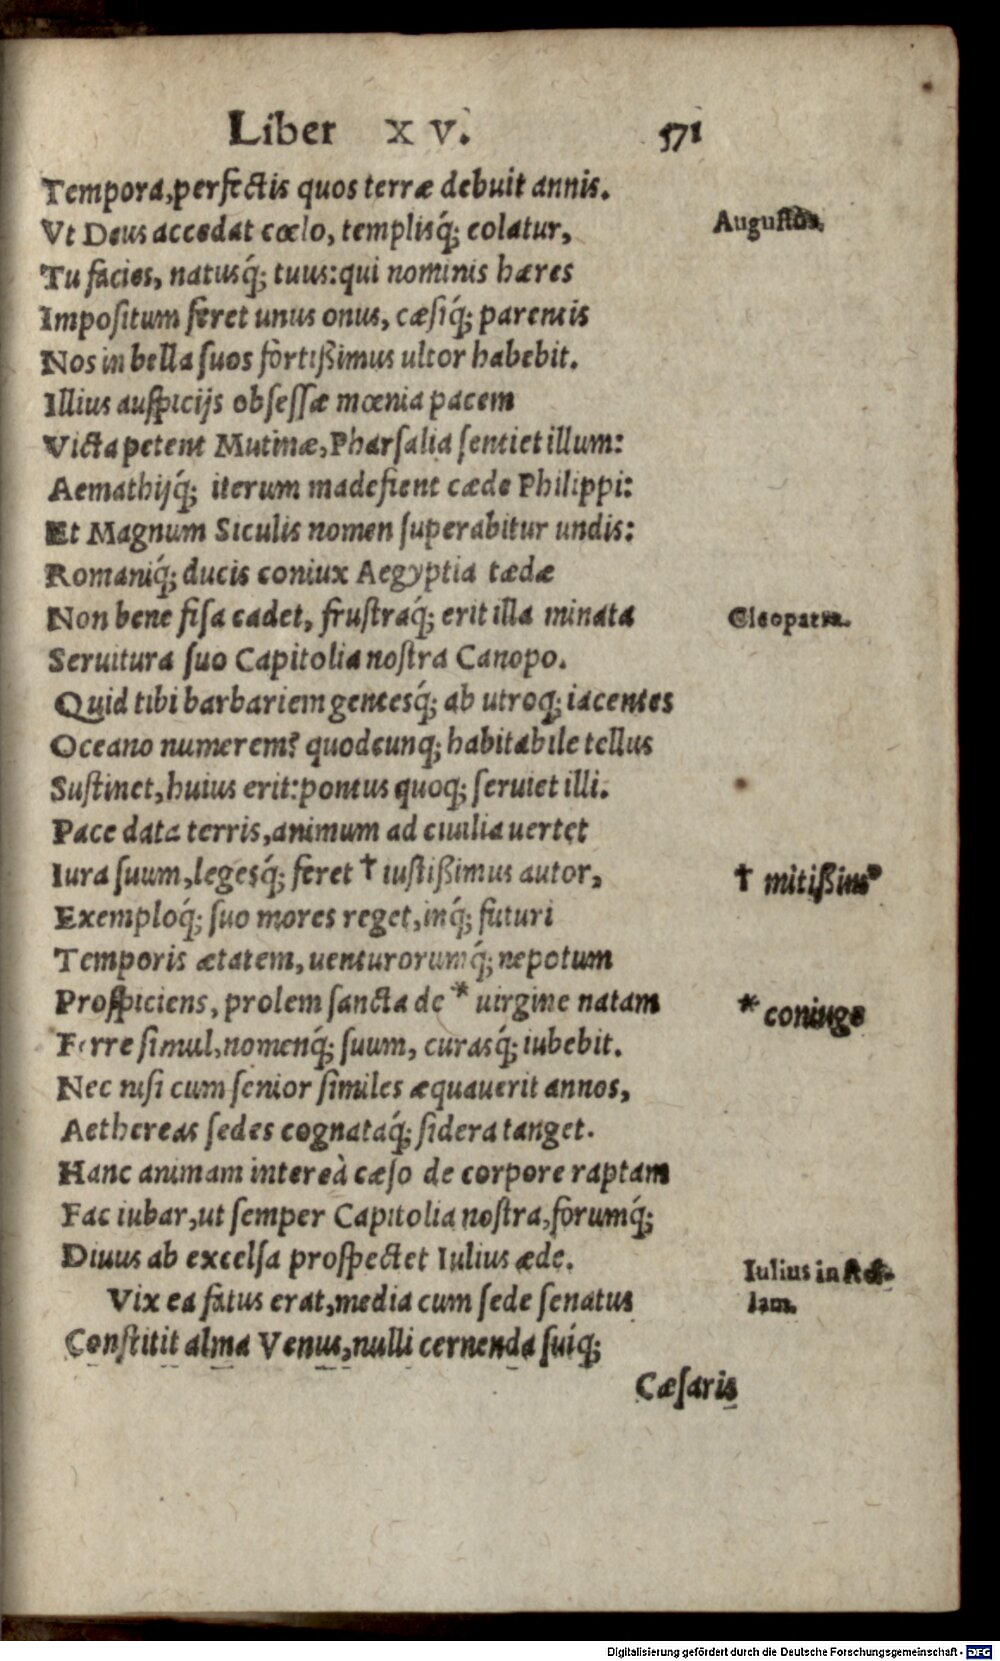 Liber XV. 571
Tempora, perfectis quos terræ debuit annis.
Vt Deus accedat cœlo, templisq́; colatur,
Augustus.
Tu facies, natusq́; tuus: qui nominis hæres
Impositum feret unus onus, cæsiq́; parentis
Nos in bella suos fortißimus ultor habebit.
Illius auspicijs obsessæ mœnia pacem
Victa petent Mutinæ, Pharsalia sentiet illum:
Aemathijq́; iterum madefient cæde Philippi:
Et Magnum Siculis nomen superabitur undis:
Romaniq́; ducis coniux Aegyptia tædæ
Non bene fisa cadet, frustraq́; erit illa minata
Cleopatra.
Seruitura suo Capitolia nostra Canopo.
Quid tibi barbariem gentesq́; ab utroq; iacentes
Oceano numerem? quodcunq; habitabile tellus
Sustinet, huius erit: pontus quoq; seruiet illi.
Pace data terris, animum ad ciuilia uertet
Iura suum, legesq́; feret † iustißimus autor,
† mitißimꝰ
Exemploq́; suo mores reget, inq́; futuri
Temporis ætatem, uenturorumq́; nepotum
Prospiciens, prolem sancta de * uirgine natam
* coniuge
Ferre simul, nomenq́; suum, curasq́; iubebit.
Nec nisi cum senior similes æquauerit annos,
Aethereas sedes cognataq́; sidera tanget.
Hanc animam intereà cæso de corpore raptam
Fac iubar, ut semper Capitolia nostra, forumq́;
Diuus ab excelsa prospectet Iulius æde.
Iulius in stel-
lam.
Vix ea fatus erat, media cum sede senatus
Constitit alma Venus, nulli cernenda suiq́;
Cæsaris
Digitalisierung gefördert durch die Deutsche Forschungsgemeinschaft - DFG